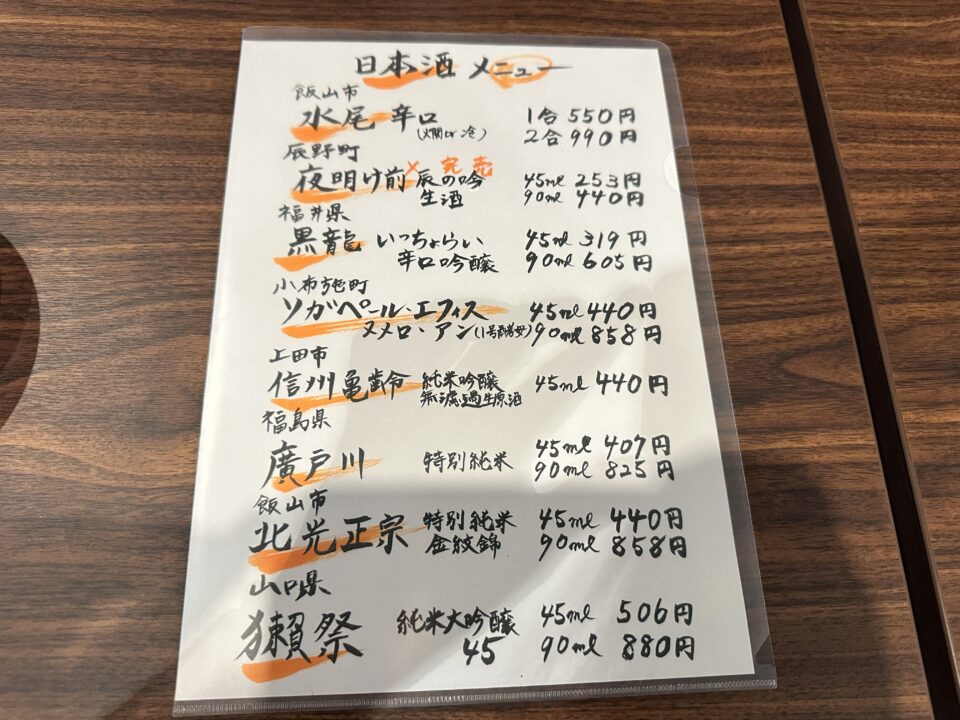 日本酒 メニュー
飯山市
水尾 辛口 1合 550円
(燗or冷) 2合 990円
辰野町
× 完売
夜明け前 辰の吟 45ml 253円
生酒 90ml 440円
福井県
黒龍 いっちょらい 45ml 319円
辛口吟醸 90ml 605円
小布施町
ソガペール・エフィス 45ml 440円
ヌメロ・アン(1号酵母) 90ml 858円
上田市
信州亀齢 純米吟醸 45ml 440円
無濾過生原酒
福島県
廣戸川 特別純米 45ml 407円
90ml 825円
飯山市
北光正宗 特別純米 45ml 440円
金紋錦 90ml 858円
山口県
獺祭 純米大吟醸 45ml 506円
45 90ml 880円